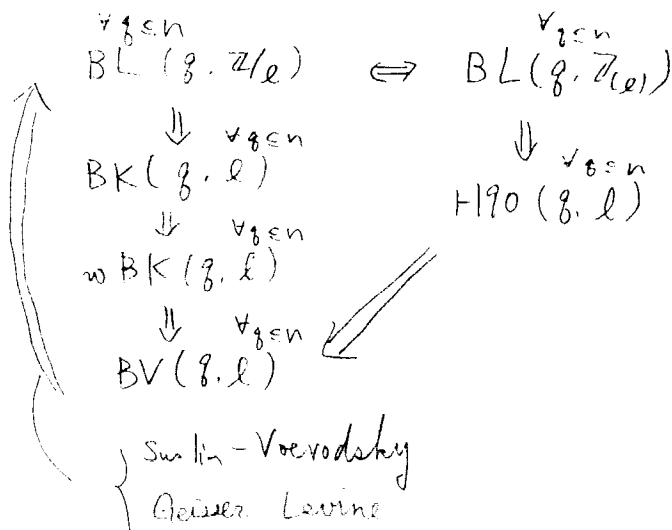 ∀q≤n ∀q≤n
BL(q, ℤ/ℓ) ⇔ BL(q, ℤ(ℓ))
⇓ ∀q≤n ⇓ ∀q≤n
BK(q, ℓ) H90(q, ℓ)
⇓ ∀q≤n
wBK(q, ℓ)
⇓ ∀q≤n
BV(q, ℓ)
Suslin-Voevodsky
Geisser Levine